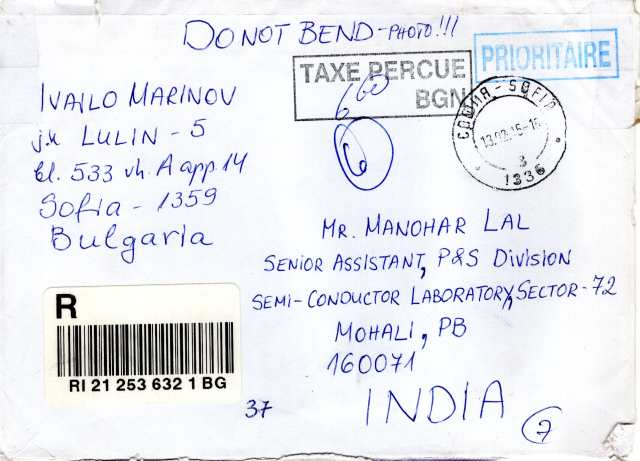 DO NOT BEND - PHOTO!!!
PRIORITAIRE
TAXE PERCUE
BGN
6 60
6
СОФИЯ - SOFIA
13.02.15-16
3
1336
IVAILO MARINOV
j.k LULIN - 5
bl. 533 vh. A app. 14
Sofia - 1359
Bulgaria
MR. MANOHAR LAL
SENIOR ASSISTANT, P&S DIVISION
SEMI-CONDUCTOR LABORATORY, SECTOR-72
MOHALI, PB
160071
INDIA
R
RI 21 253 632 1 BG
37
7